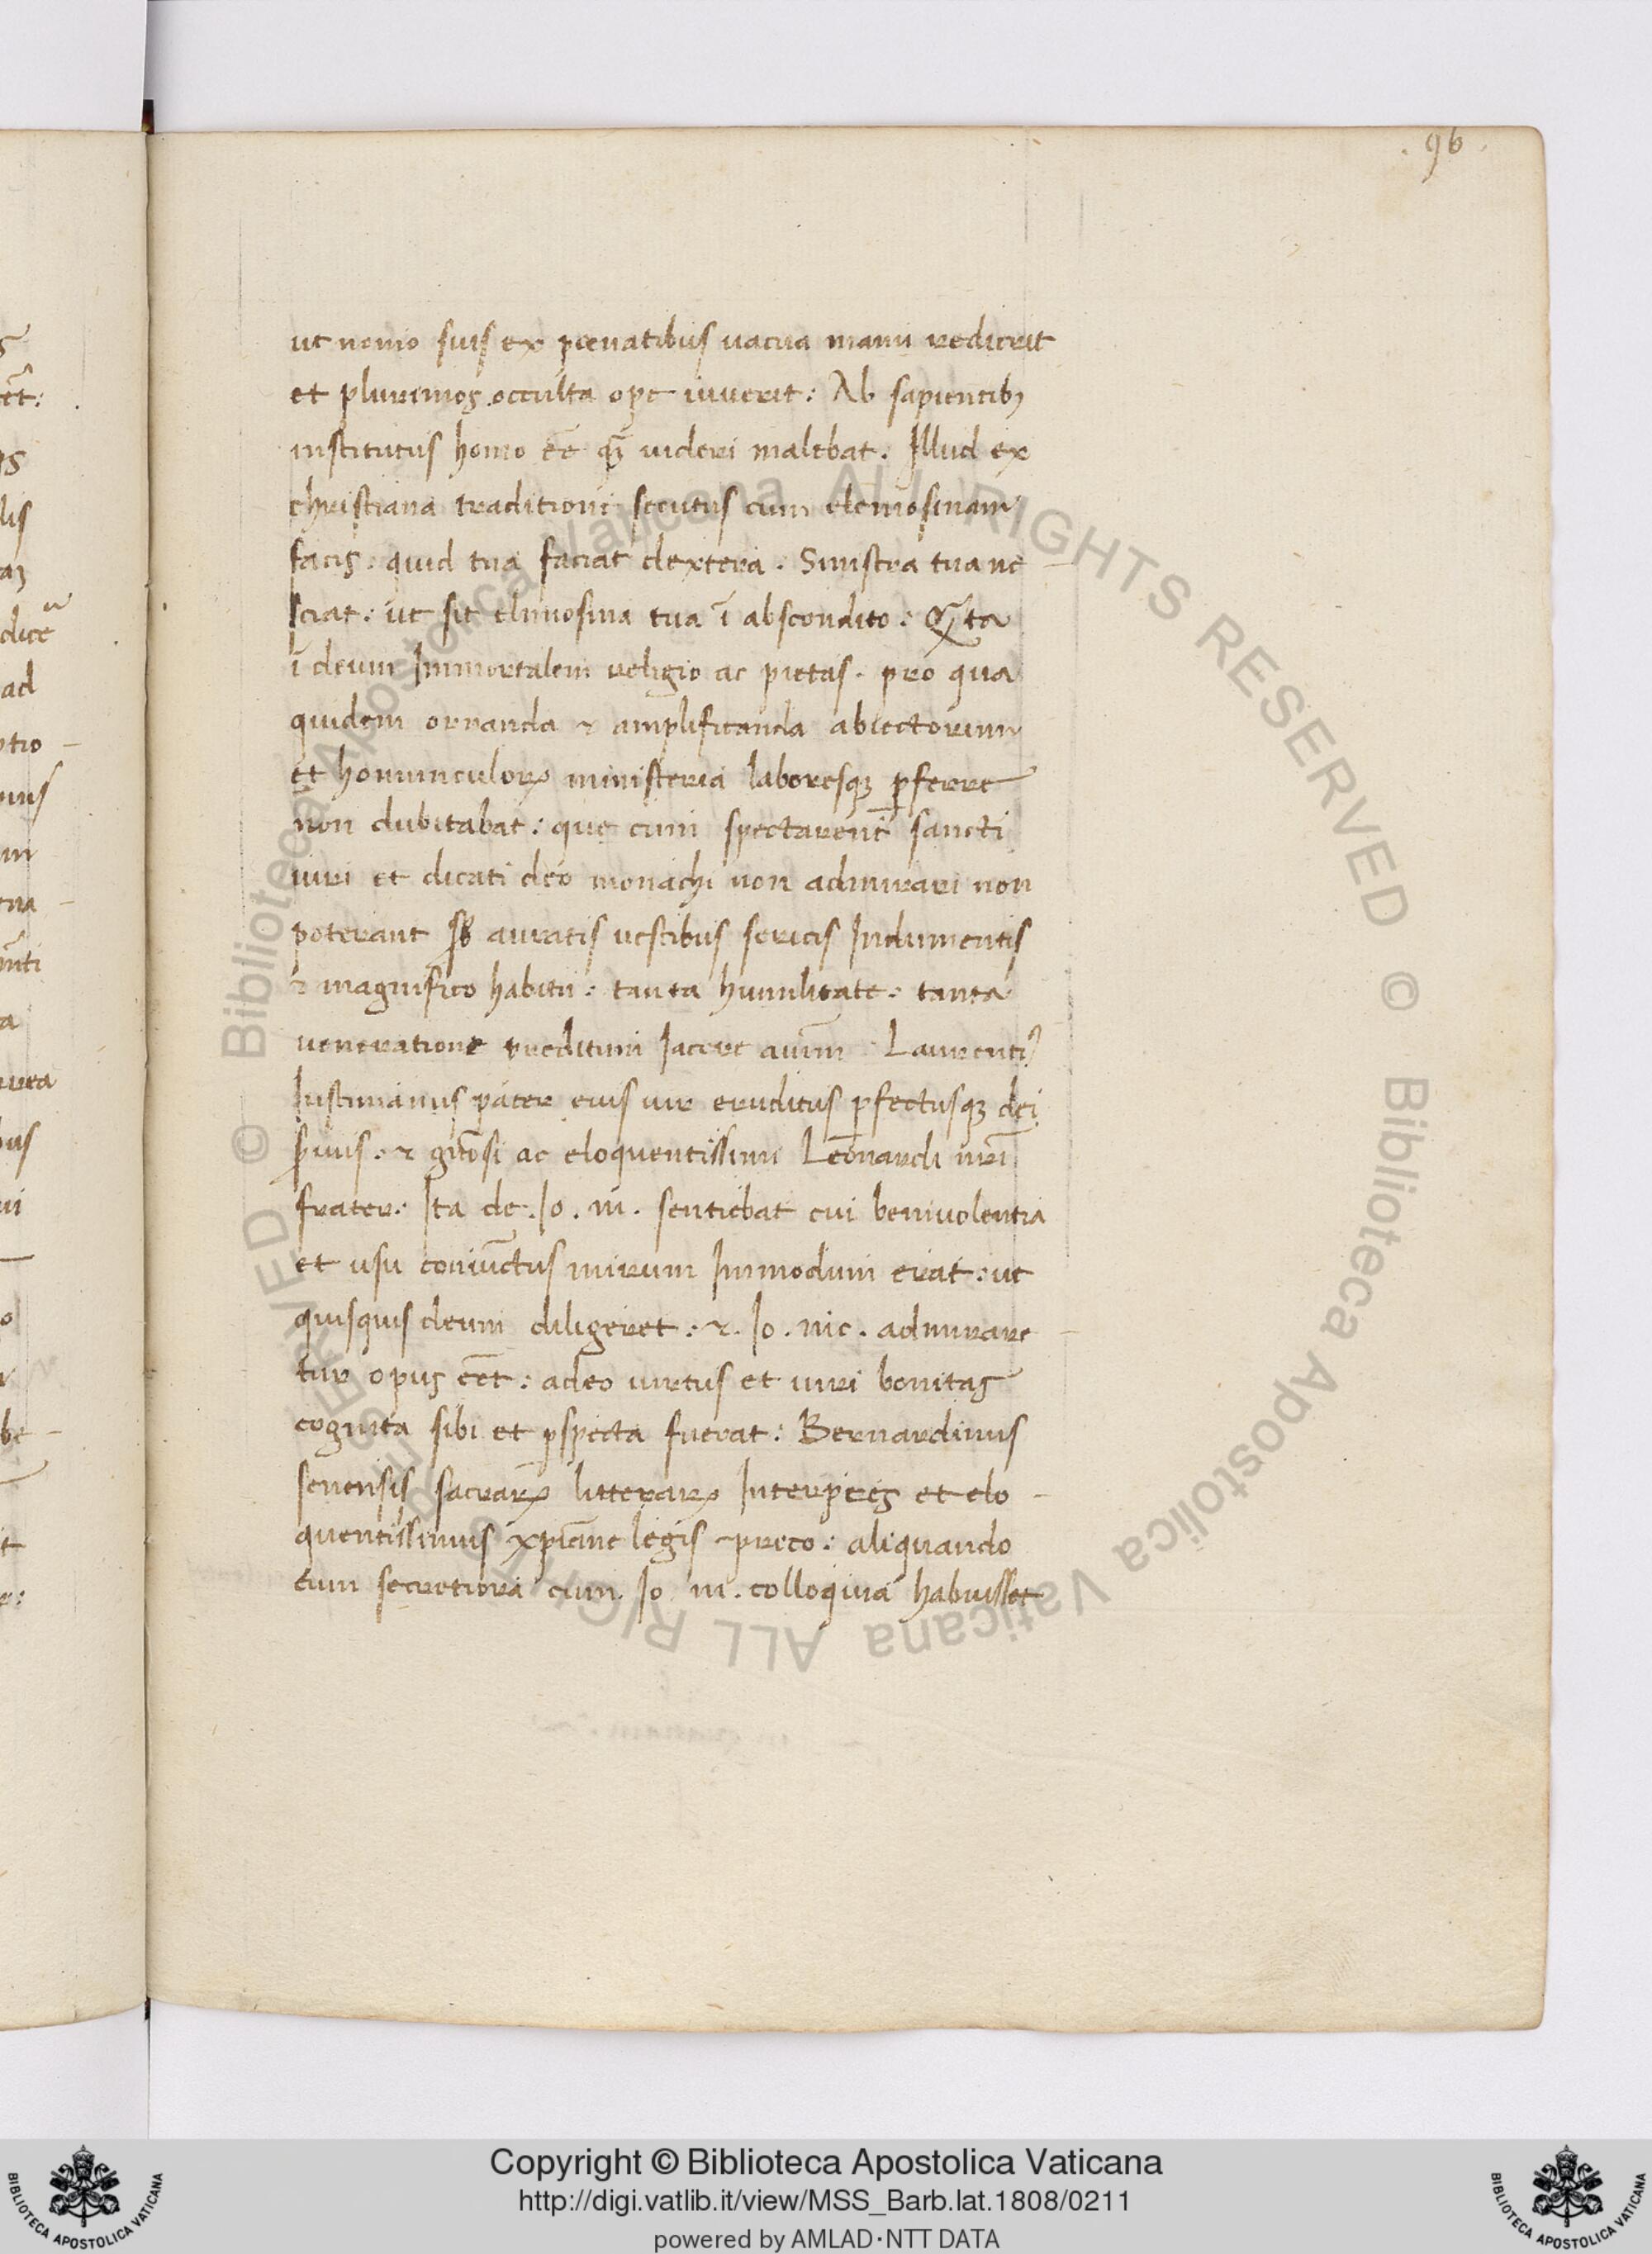 . 96 .
ut nemo suis ex penatibus vacua manu redierit
et plurimos occulta ope iuverit : Ab sapientibꝫ
institutus homo eē̄ qꝫ videri malebat . Illud ex
christiana traditione secutus cum elemosinam
facis . quid tua faciat dextera . Sinistra tua ne
sciat : ut sit elimosina tua ī abscondito : Q̄ta
ī deum Immortalem religio ac pietas . pro qua
quidem ornanda ⁊ amplificanda abiectorum
et homunculoꝝ ministeria laboresqꝫ ꝑferre
non dubitabat : que cum spectarent̄ sancti
viri et dicati deo monachi non admirari non
poterant sb auratis vestibus sericis Indumentis
⁊ magnifico habitu : tanta humilitate : tanta
veneratione preditum Iacere aīum . Laurentiꝰ
Iustinianus pater eius vir eruditus ꝑfectusqꝫ dei
s̄vus . ⁊ gn̄osi ac eloquentissimi Leonardi nr̄i
frater . Ita de . Io . ni . sentiebat cui benivolentia
et usu coniūctus mirum Immodum erat : ut
quisquis deum diligeret : ⁊ . Io . nic . admirare
tur opus eēt : adeo virtus et viri bonitas
cognita sibi et ꝑspecta fuerat : Bernardinus
senensis sacraꝝ litteraꝝ Interpres et elo -
quentissimus xp̄iane legis preco : aliquando
cum secretiora cum . Io ni . colloquia habuisset
Copyright © Biblioteca Apostolica Vaticana
http://digi.vatlib.it/view/MSS_Barb.lat.1808/0211
powered by AMLAD·NTT DATA